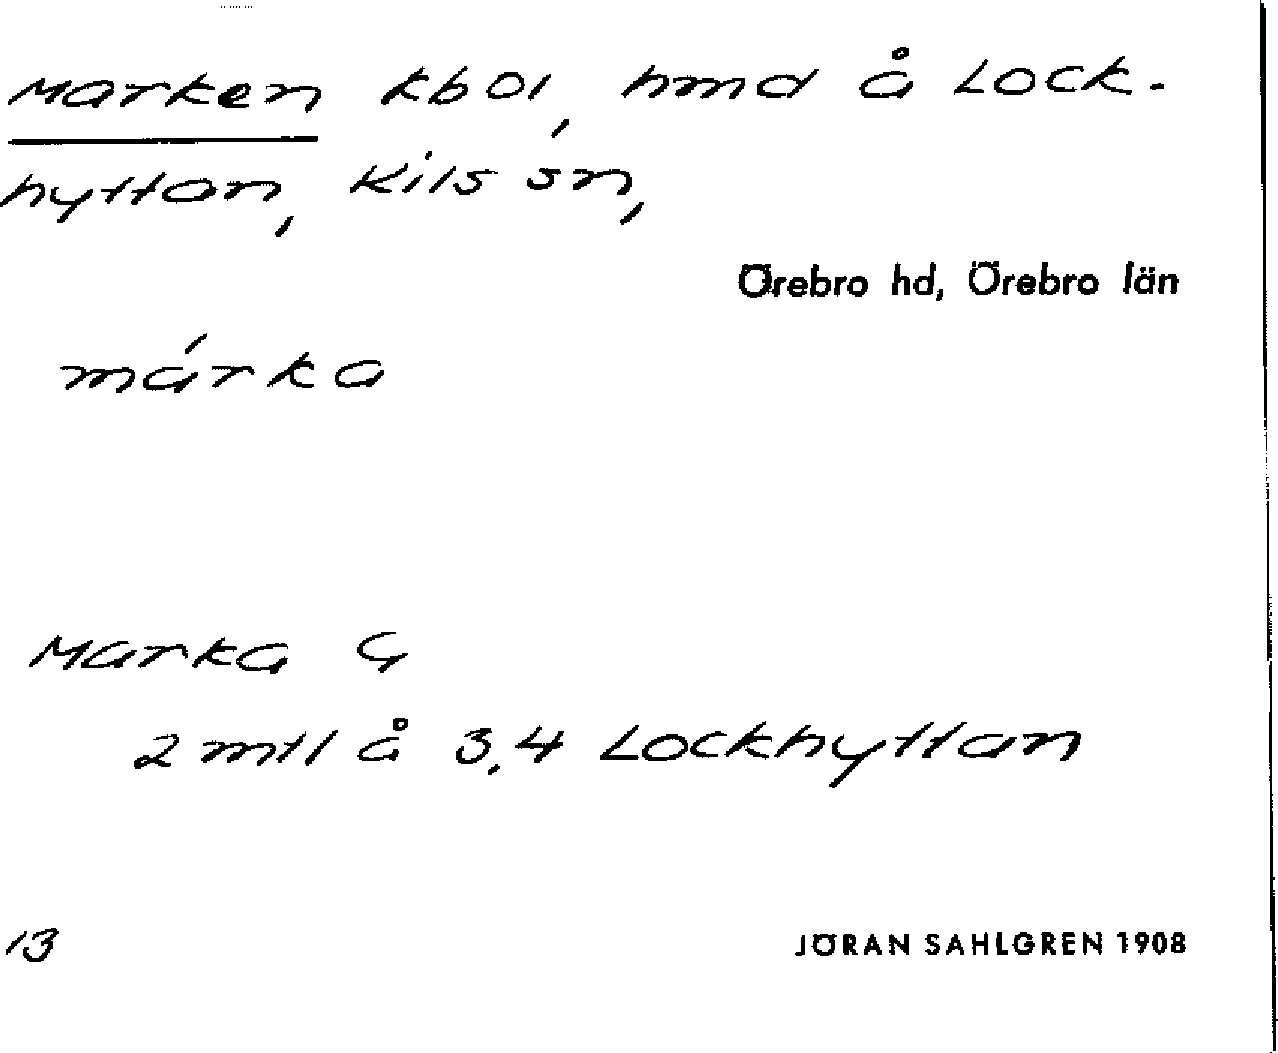 Marken kbol, hmd å Lock-
hyttan, Kils sn,
Örebro hd, Örebro län
márka
Marka G
2 mtl å 3,4 Lockhyttan
13
JÖRAN SAHLGREN 1908